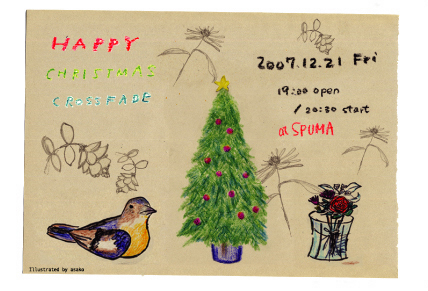 HAPPY
CHRISTMAS
CROSSFADE
2007.12.21 Fri
19:00 open
/ 20:30 start
at SPUMA
Illustrated by asako